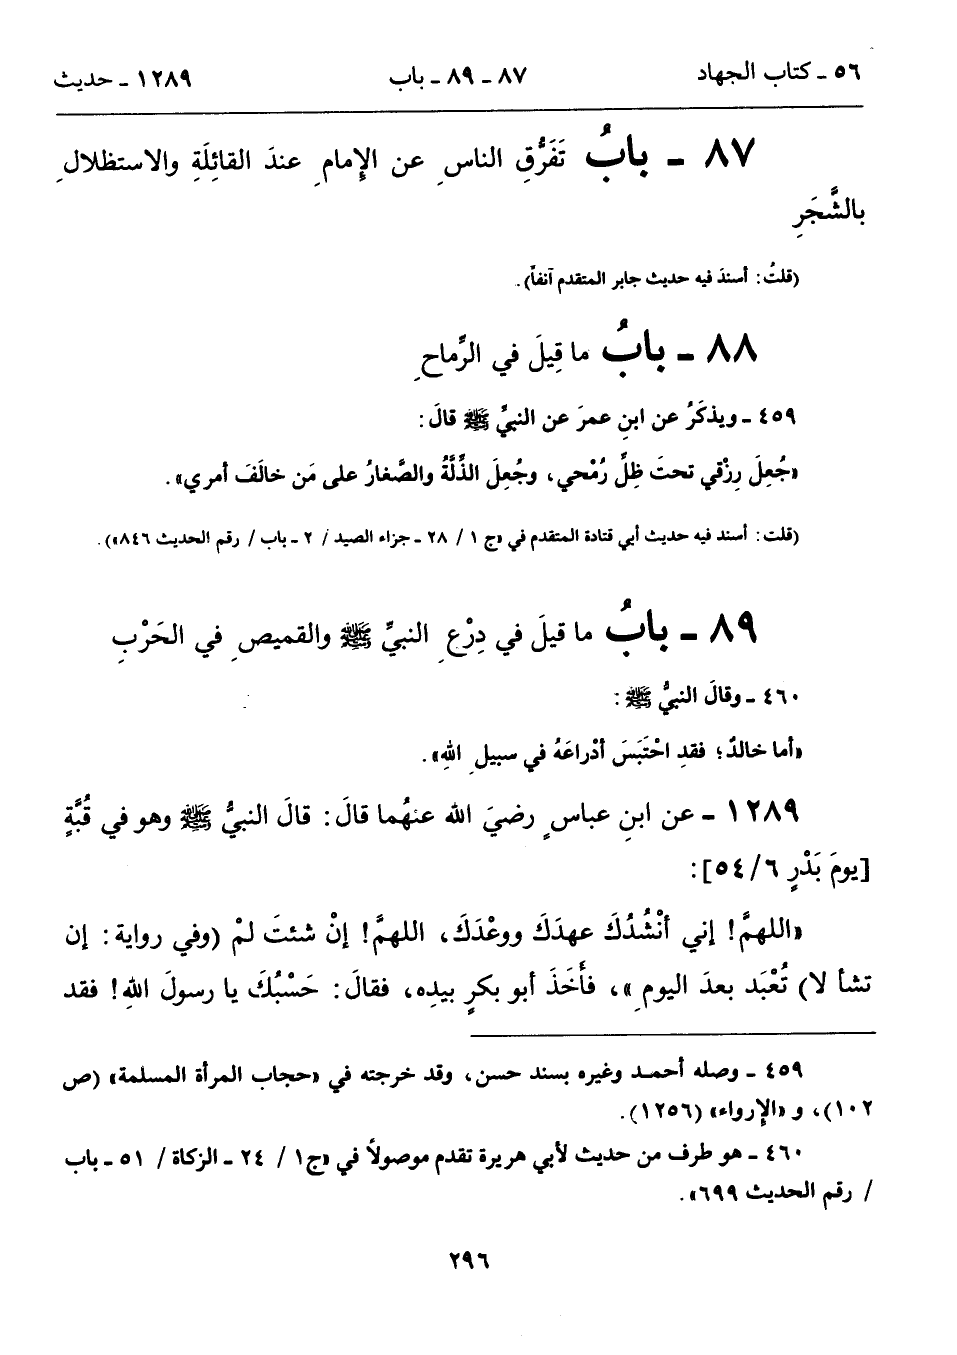 ٥٦ - كتاب الجهاد ٨٧ - ٨٩ - باب ١٢٨٩ - حديث
٨٧ - بابُ تَفَرُّقِ الناسِ عن الإِمامِ عندَ القائِلَةِ والاستظلالِ
بالشَّجَرِ
(قلتُ: أسندَ فيه حديث جابر المتقدم آنفاً).
٨٨ - بابُ ما قِيلَ في الرِّماحِ
٤٥٩ - ويذكَرُ عن ابنِ عمرَ عن النبيِّ ﷺ قالَ:
«جُعِلَ رِزْقي تحتَ ظِلِّ رُمْحي، وجُعِلَ الذِّلَّةُ والصَّغارُ على مَن خالَفَ أمري».
(قلت: أسند فيه حديث أبي قتادة المتقدم في «ج ١ / ٢٨ - جزاء الصيد / ٢ - باب / رقم الحديث ٨٤٦»).
٨٩ - بابُ ما قيلَ في دِرْعِ النبيِّ ﷺ والقميصِ في الحَرْبِ
٤٦٠ - وقالَ النبيُّ ﷺ:
«أما خالدٌ؛ فقدِ احْتَبَسَ أدْراعَهُ في سبيلِ اللهِ».
١٢٨٩ - عن ابنِ عباسٍ رضيَ الله عنهُما قالَ: قالَ النبيُّ ﷺ وهو في قُبَّةٍ
[يومَ بَدْرٍ ٦/ ٥٤]:
«اللهمَّ! إني أنْشُدُكَ عهدَكَ ووعْدَكَ، اللهمَّ! إنْ شئتَ لمْ (وفي رواية: إن
تشأ لا) تُعْبَد بعدَ اليومِ»، فأَخَذَ أبو بكرٍ بيدِه، فقالَ: حَسْبُكَ يا رسولَ اللهِ! فقد
٤٥٩ - وصله أحمد وغيره بسند حسن، وقد خرجته في «حجاب المرأة المسلمة» (ص
١٠٢)، و «الإرواء» (١٢٥٦).
٤٦٠ - هو طرف من حديث لأبي هريرة تقدم موصولاً في «ج١ / ٢٤ - الزكاة / ٥١ - باب
/ رقم الحديث ٦٩٩».
٢٩٦